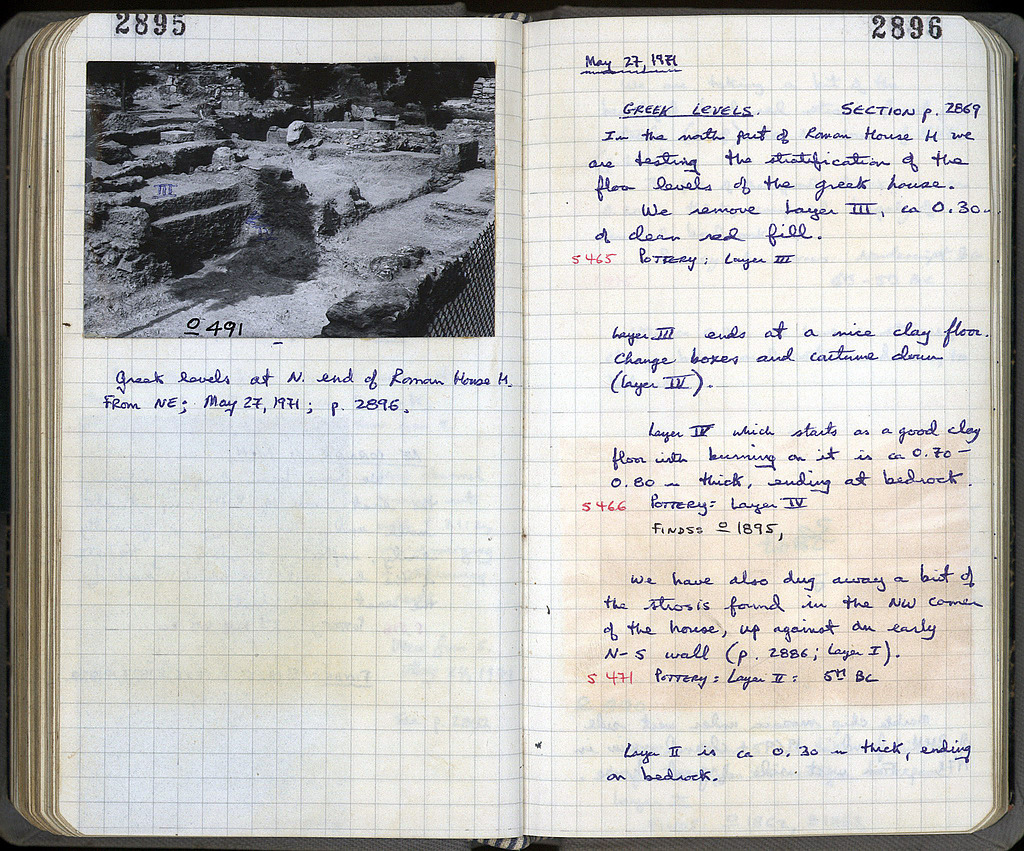 2895
III
O 491
Greek levels at N. end of Roman House H.
From NE; May 27, 1971; p. 2896.
2896
May 27, 1971
GREEK LEVELS. SECTION p. 2869
In the north part of Roman House H we
are testing the stratification of the
floor levels of the greek house.
We remove Layer III, ca 0.30 m
of clean red fill.
5465 POTTERY: Layer III
Layer III ends at a nice clay floor.
Change boxes and continue down
(Layer IV).
Layer IV which starts as a good clay
floor with burning on it is ca 0.70 –
0.80 m thick, ending at bedrock.
5466 POTTERY: Layer IV
FINDS: O 1895,
We have also dug away a bit of
the strosis found in the NW corner
of the house, up against an early
N-S wall (p. 2886; Layer I).
5471 POTTERY: Layer II: 5th BC
Layer II is ca 0.30 m thick, ending
on bedrock.